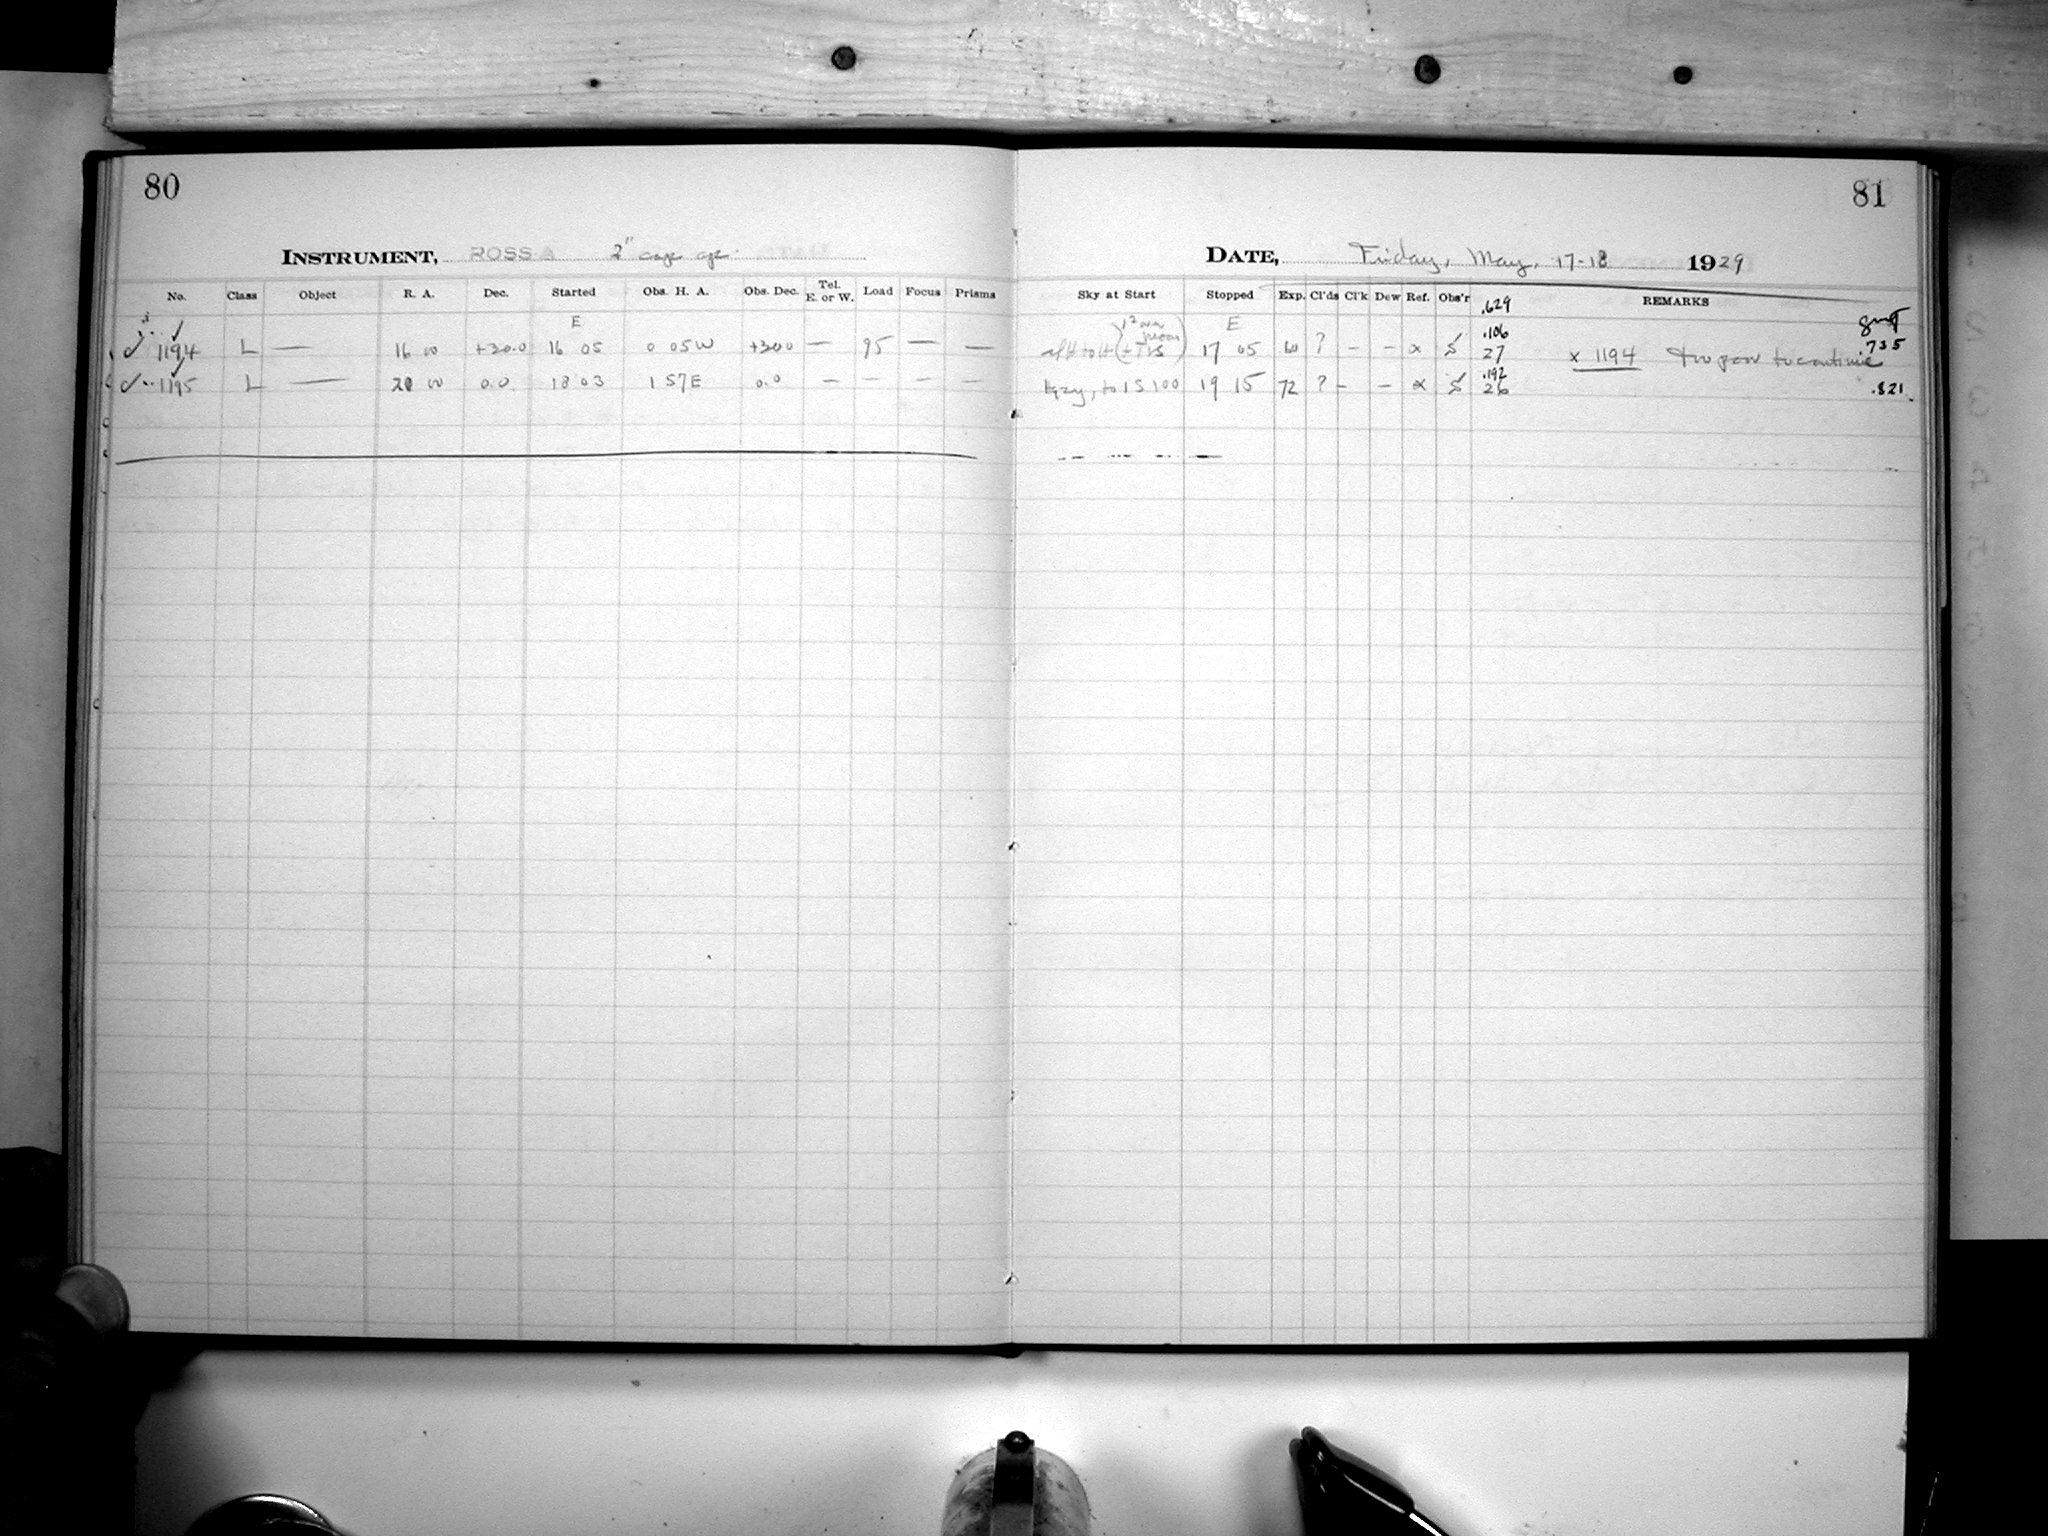 80
INSTRUMENT, ROSS-A 2" cage ap.
No. Class Object R. A. Dec. Started Obs. H. A. Obs. Dec. Tel. E. or W. Load Focus Prisms
E
1194 L — 16 00 +30.0 16 05 0 05W +30.0 — 95 — —
1195 L — 20 00 0.0 18 03 1 57E 0.0 — — — —
81
DATE, Friday, May, 17-18 1929
Sky at Start Stopped Exp. Cl'ds Cl'k Dew Ref. Obs'r REMARKS
.629
E
17 05 60 ? — — α S .106 27 x 1194 too poor to continue GMT 735
Hazy, to 15 100 19 15 72 ? — — α S .192 26 .821